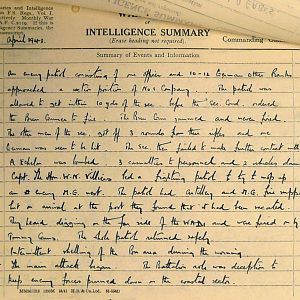 aries and Intelligence
in F.S. Regs., Vol. I.
ectively. Monthly War
in A.F. C.2119. If this is
lligence Summaries, the
WAR
or
INTELLIGENCE SUMMARY
(Erase heading not required).
Commanding
April 1943.
Summary of Events and Information
An enemy patrol consisting of one officer and 10-12 German Other Ranks
approached a section position of No 1 Company. The patrol was
allowed to get within 10 yds of the sec. before the Sec. Comd. ordered
the Bren Gunner to fire. The Bren Gun jammed and never fired.
The other men of the sec. got off 3 rounds from their rifles and one
German was seen to be hit. The Sec. then failed to make further contact with
A Echelon was bombed 3 casualties to personnel and 2 vehicles
Capt. The Hon. W.N. Villiers led a fighting patrol to try to mop up
an enemy M.G. nest. The patrol had Artillery and M.G. fire support
but on arrival at the post they found that it had been vacated.
They heard digging on the far side of the WADI and were fired on by
Tommy Guns. The whole patrol returned safely.
Intermittent shelling of the Bn area during the morning.
The main attack began. The Battalion role was deception to
keep enemy forces pinned down in the coastal sector.